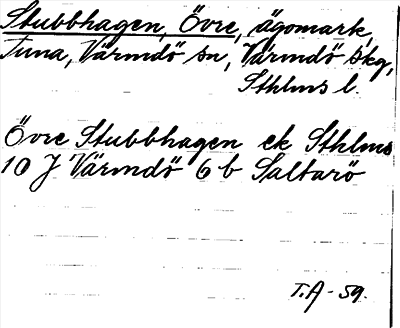 Stubbhagen, Övre, ägomark,
Tuna, Värmdö sn, Värmdö skg,
Sthlms l.
Övre Stubbhagen ek Sthlms
10 J Värmdö 6 b Saltarö
T.A - 59.